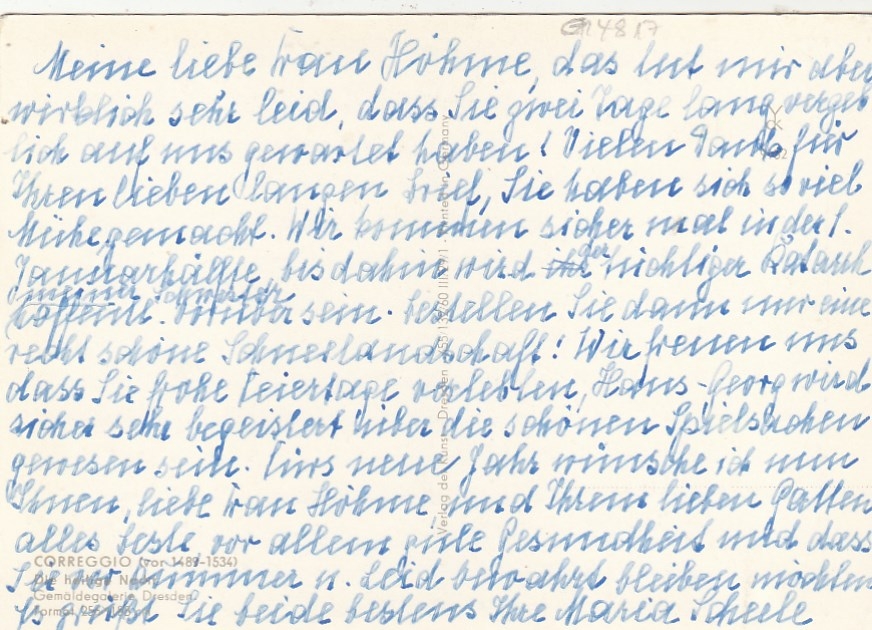 GM 48 17
Meine liebe Frau Höhme, das tut mir aber
wirklich sehr leid, dass Sie zwei Tage lang vergeb
lich auf uns gewartet haben! Vielen Dank für
Ihren lieben langen Brief, Sie haben sich so viel
Mühe gemacht. Wir kommen sicher mal in der 1.
Januarhälfte, bis dahin wird der nichtiger Katarrh
meiner Schwester
hoffentl. vorüber sein. Bestellen Sie dann nur eine
recht schöne Schneelandschaft! Wir freuen uns
dass Sie frohe Feiertage verlebten, Hans-Georg wird
sicher sehr begeistert über die schönen Spielsachen
gewesen sein. Fürs neue Jahr wünsche ich nun
Ihnen, liebe Frau Höhme und Ihrem lieben Gatten
alles Beste vor allem gute Gesundheit und dass
Sie vor Kummer u. Leid bewahrt bleiben möchten
Es grüßt Sie beide bestens Ihre Maria Scheele
CORREGGIO (vor 1489-1534)
Die heilige Nacht
Gemäldegalerie Dresden
Format 256 x 188 cm
Verlag der Kunst Dresden
Printed in Germany